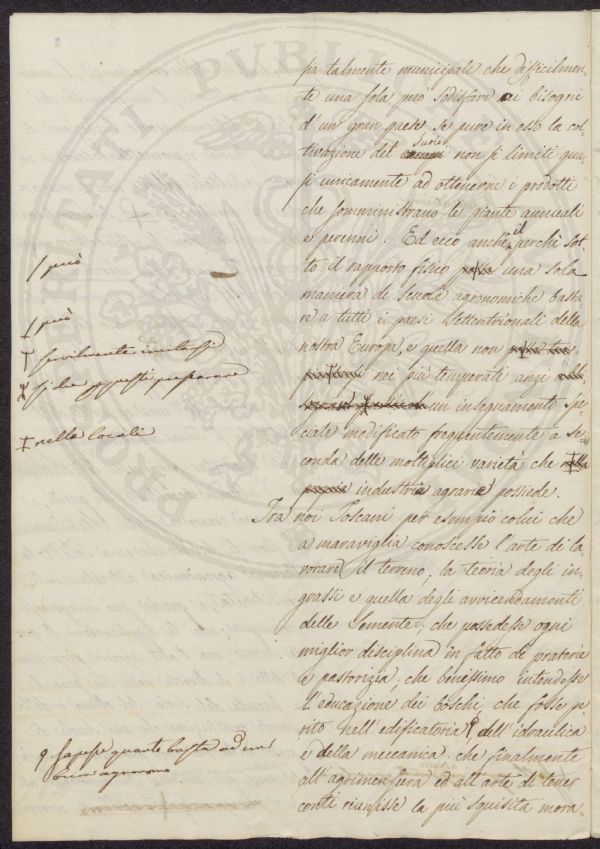 sia talmente municipale che difficilmen-
te una sola può sodisfare ai bisogni
d'un gran paese se pure in esso la col
tivazione del suolo non si limiti qua
si unicamente ad ottenerne i prodotti
che somministrano le piante annuali
e perenni. Ed ecco anche il perchè sot-
to il rapporto fisico una sola
maniera di scuole agronomiche basta
re a tutti i paesi settentrionali della
nostra Europa, e quella non
nei più temperati anzi
un insegnamento spe
ciale modificato frequentemente a se
conda delle moltiplici varietà che
industrie agrarie possiede.
Tra noi Toscani per esempio colui che
a maraviglia conoscesse l'arte di la-
vorare il terreno, la teoria degli in-
grassi e quella degli avvicendamenti
delle semente; che possedesse ogni
miglior disciplina in fatto di praterie
e pastorizia; che benissimo intendesse
l'educazione dei boschi, che fosse pe
rito nell'edificatoria, dell'idraulica
e della meccanica; che finalmente
all'agrimensura ed all'arte di tener
conti riunisse la più squisita mora-
può
può
servilmente
si dee
nelle locali
sapesse quanto basta ad un
buon agronomo
PVBLI